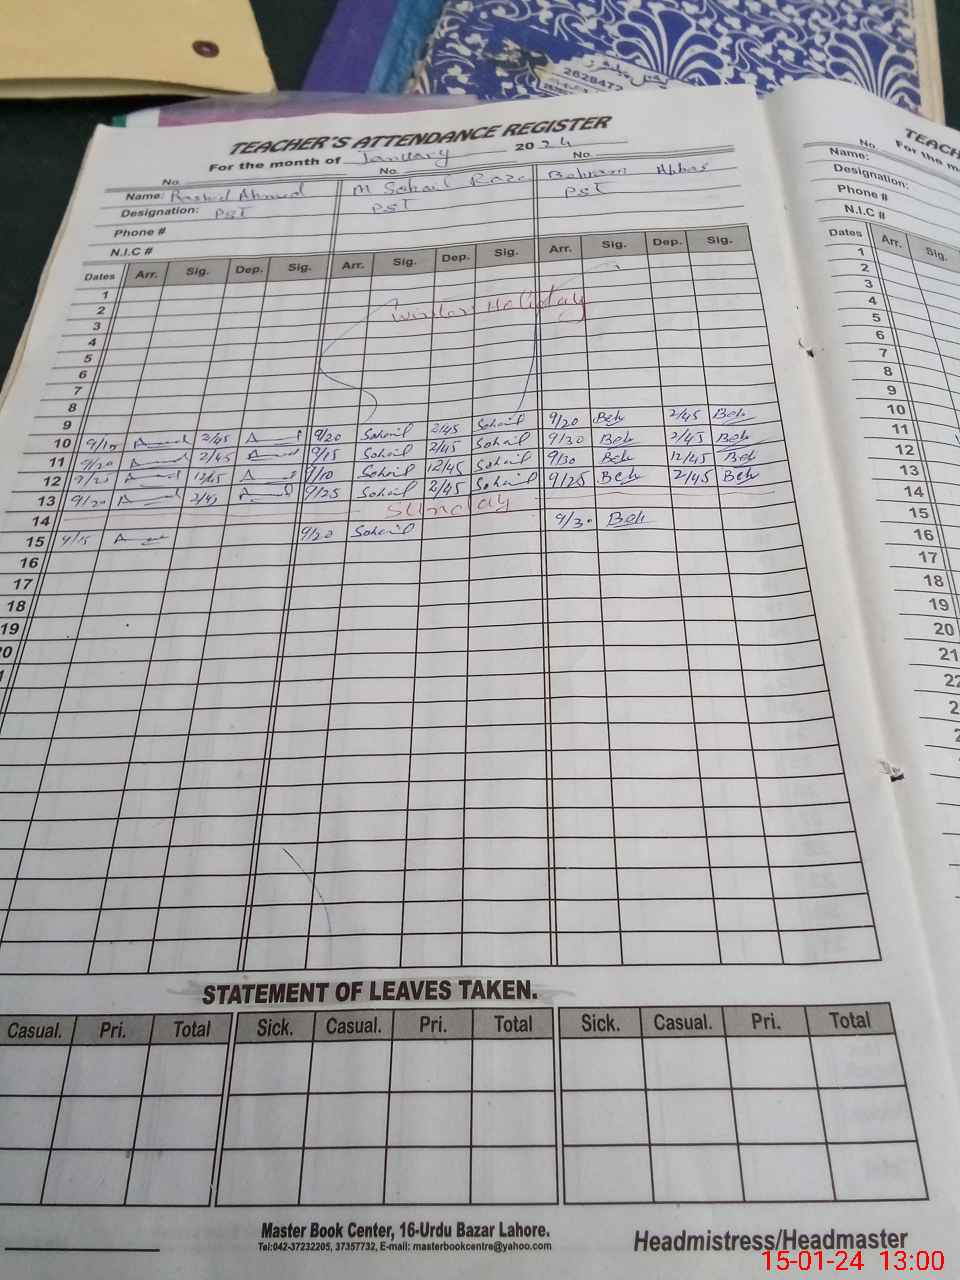 2628472
TEACHER'S ATTENDANCE REGISTER
For the month of January 2024
No. No. No.
Name: Rashid Ahmad M Sohail Raza Behram Abbas
Designation: PST PST PST
Phone #
N.I.C #
Dates Arr. Sig. Dep. Sig. Arr. Sig. Dep. Sig. Arr. Sig. Dep. Sig.
1
2 Winter Holiday
3
4
5
6
7
8
9
10 9/15 2/45 9/20 Sohail 2/45 Sohail 9/20 Beh 2/45 Beh
11 9/20 2/45 9/15 Sohail 2/45 Sohail 9/30 Beh 2/45 Beh
12 9/25 12/45 9/10 Sohail 12/45 Sohail 9/30 Beh 12/45 Beh
13 9/20 2/45 9/25 Sohail 2/45 Sohail 9/25 Beh 2/45 Beh
14 Sunday
15 9/15 9/20 Sohail 9/30 Beh
16
17
18
19
20
STATEMENT OF LEAVES TAKEN.
Casual. Pri. Total Sick. Casual. Pri. Total Sick. Casual. Pri. Total
Master Book Center, 16-Urdu Bazar Lahore.
Tel:042-37232205, 37357732, E-mail: masterbookcentre@yahoo.com
Headmistress/Headmaster
TEACH
No.
For the m
Name:
Designation:
Phone #
N.I.C #
Dates Arr. Sig.
1
2
3
4
5
6
7
8
9
10
11
12
13
14
15
16
17
18
19
20
21
22
15-01-24 13:00